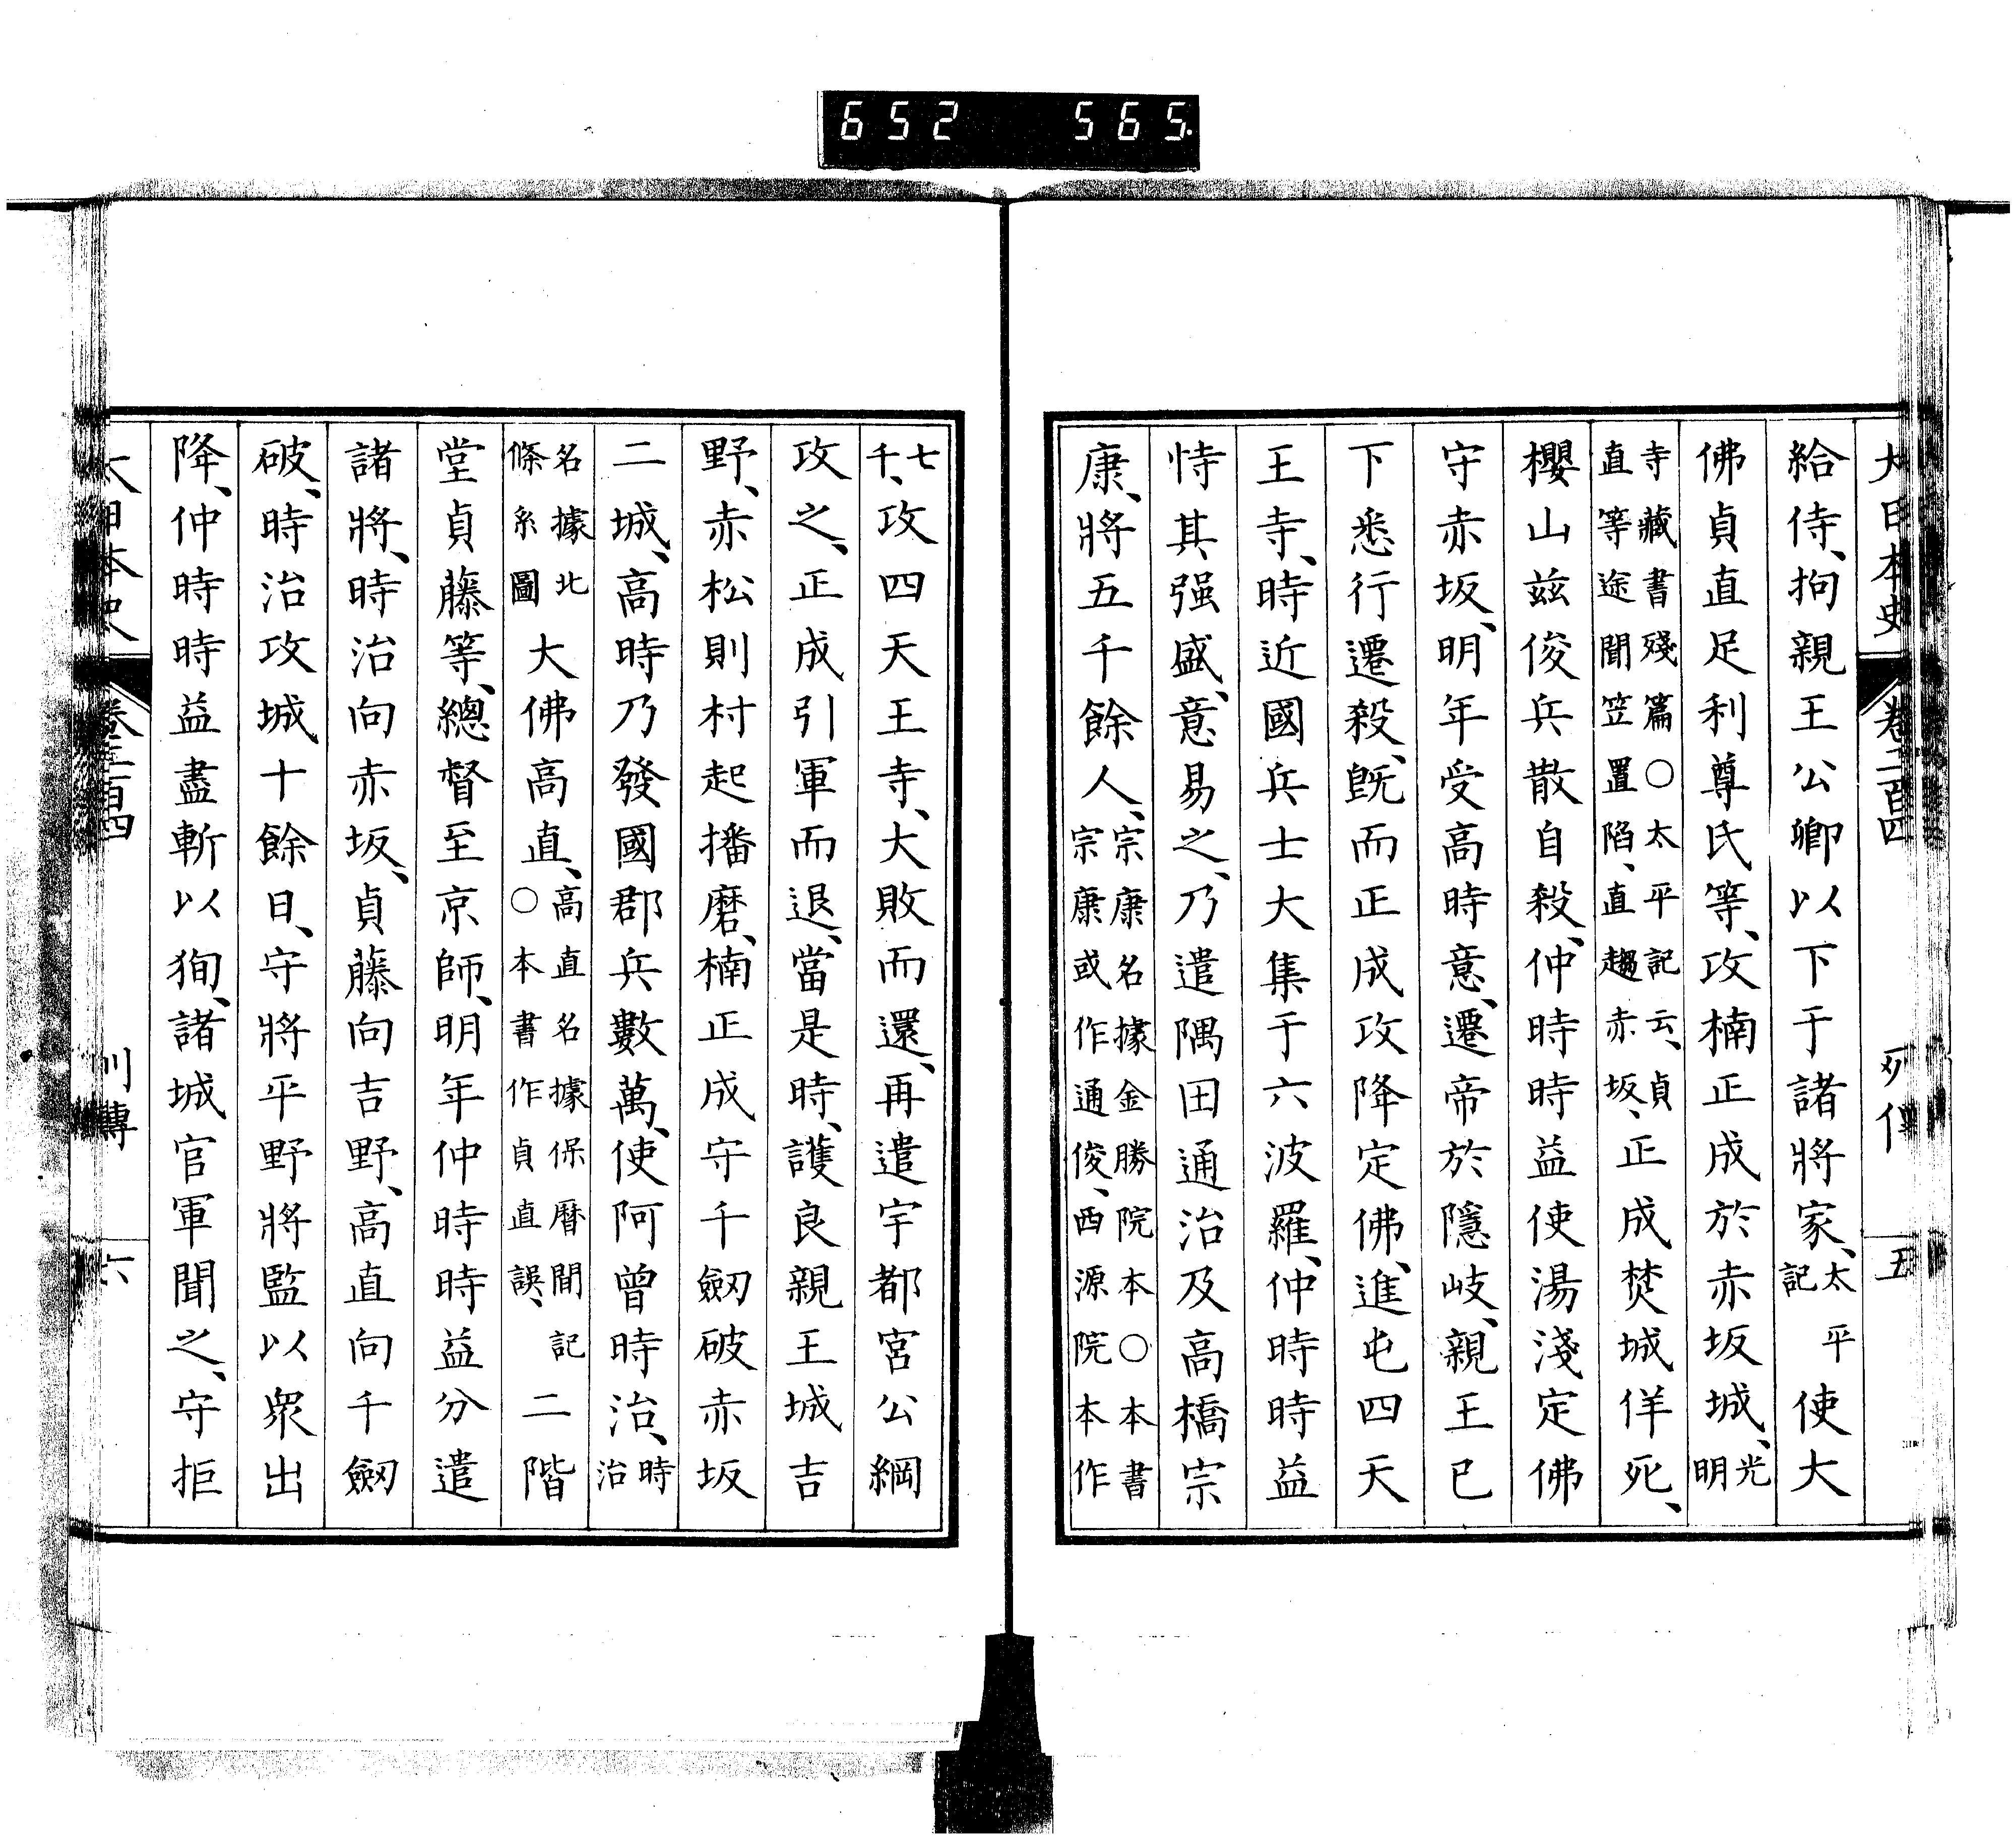 652 565
大日本史 卷二百四 列傳 五
給侍、拘親王公卿以下于諸將家、太平記 使大
佛貞直足利尊氏等、攻楠正成於赤坂城、光明
寺藏書殘篇○太平記云、貞直等途聞笠置陷、直趨赤坂、 正成焚城佯死、
櫻山玆俊兵散自殺、仲時時益使湯淺定佛
守赤坂、明年受高時意、遷帝於隱岐、親王已
下悉行遷殺、旣而正成攻降定佛、進屯四天
王寺、時近國兵士大集于六波羅、仲時時益
恃其强盛、意易之、乃遣隅田通治及高橋宗
康、將五千餘人、宗康名據金勝院本○本書宗康或作通俊、西源院本作
七千、攻四天王寺、大敗而還、再遣宇都宮公綱
攻之、正成引軍而退、當是時、護良親王城吉
野、赤松則村起播磨、楠正成守千劒破赤坂
二城、高時乃發國郡兵數萬、使阿曾時治、時治
名據北條系圖 大佛高直、高直名據保曆間記○本書作貞直誤、 二階
堂貞藤等、總督至京師、明年仲時時益分遣
諸將、時治向赤坂、貞藤向吉野、高直向千劒
破、時治攻城十餘日、守將平野將監以衆出
降、仲時時益盡斬以徇、諸城官軍聞之、守拒
大日本史 卷二百四 列傳 六